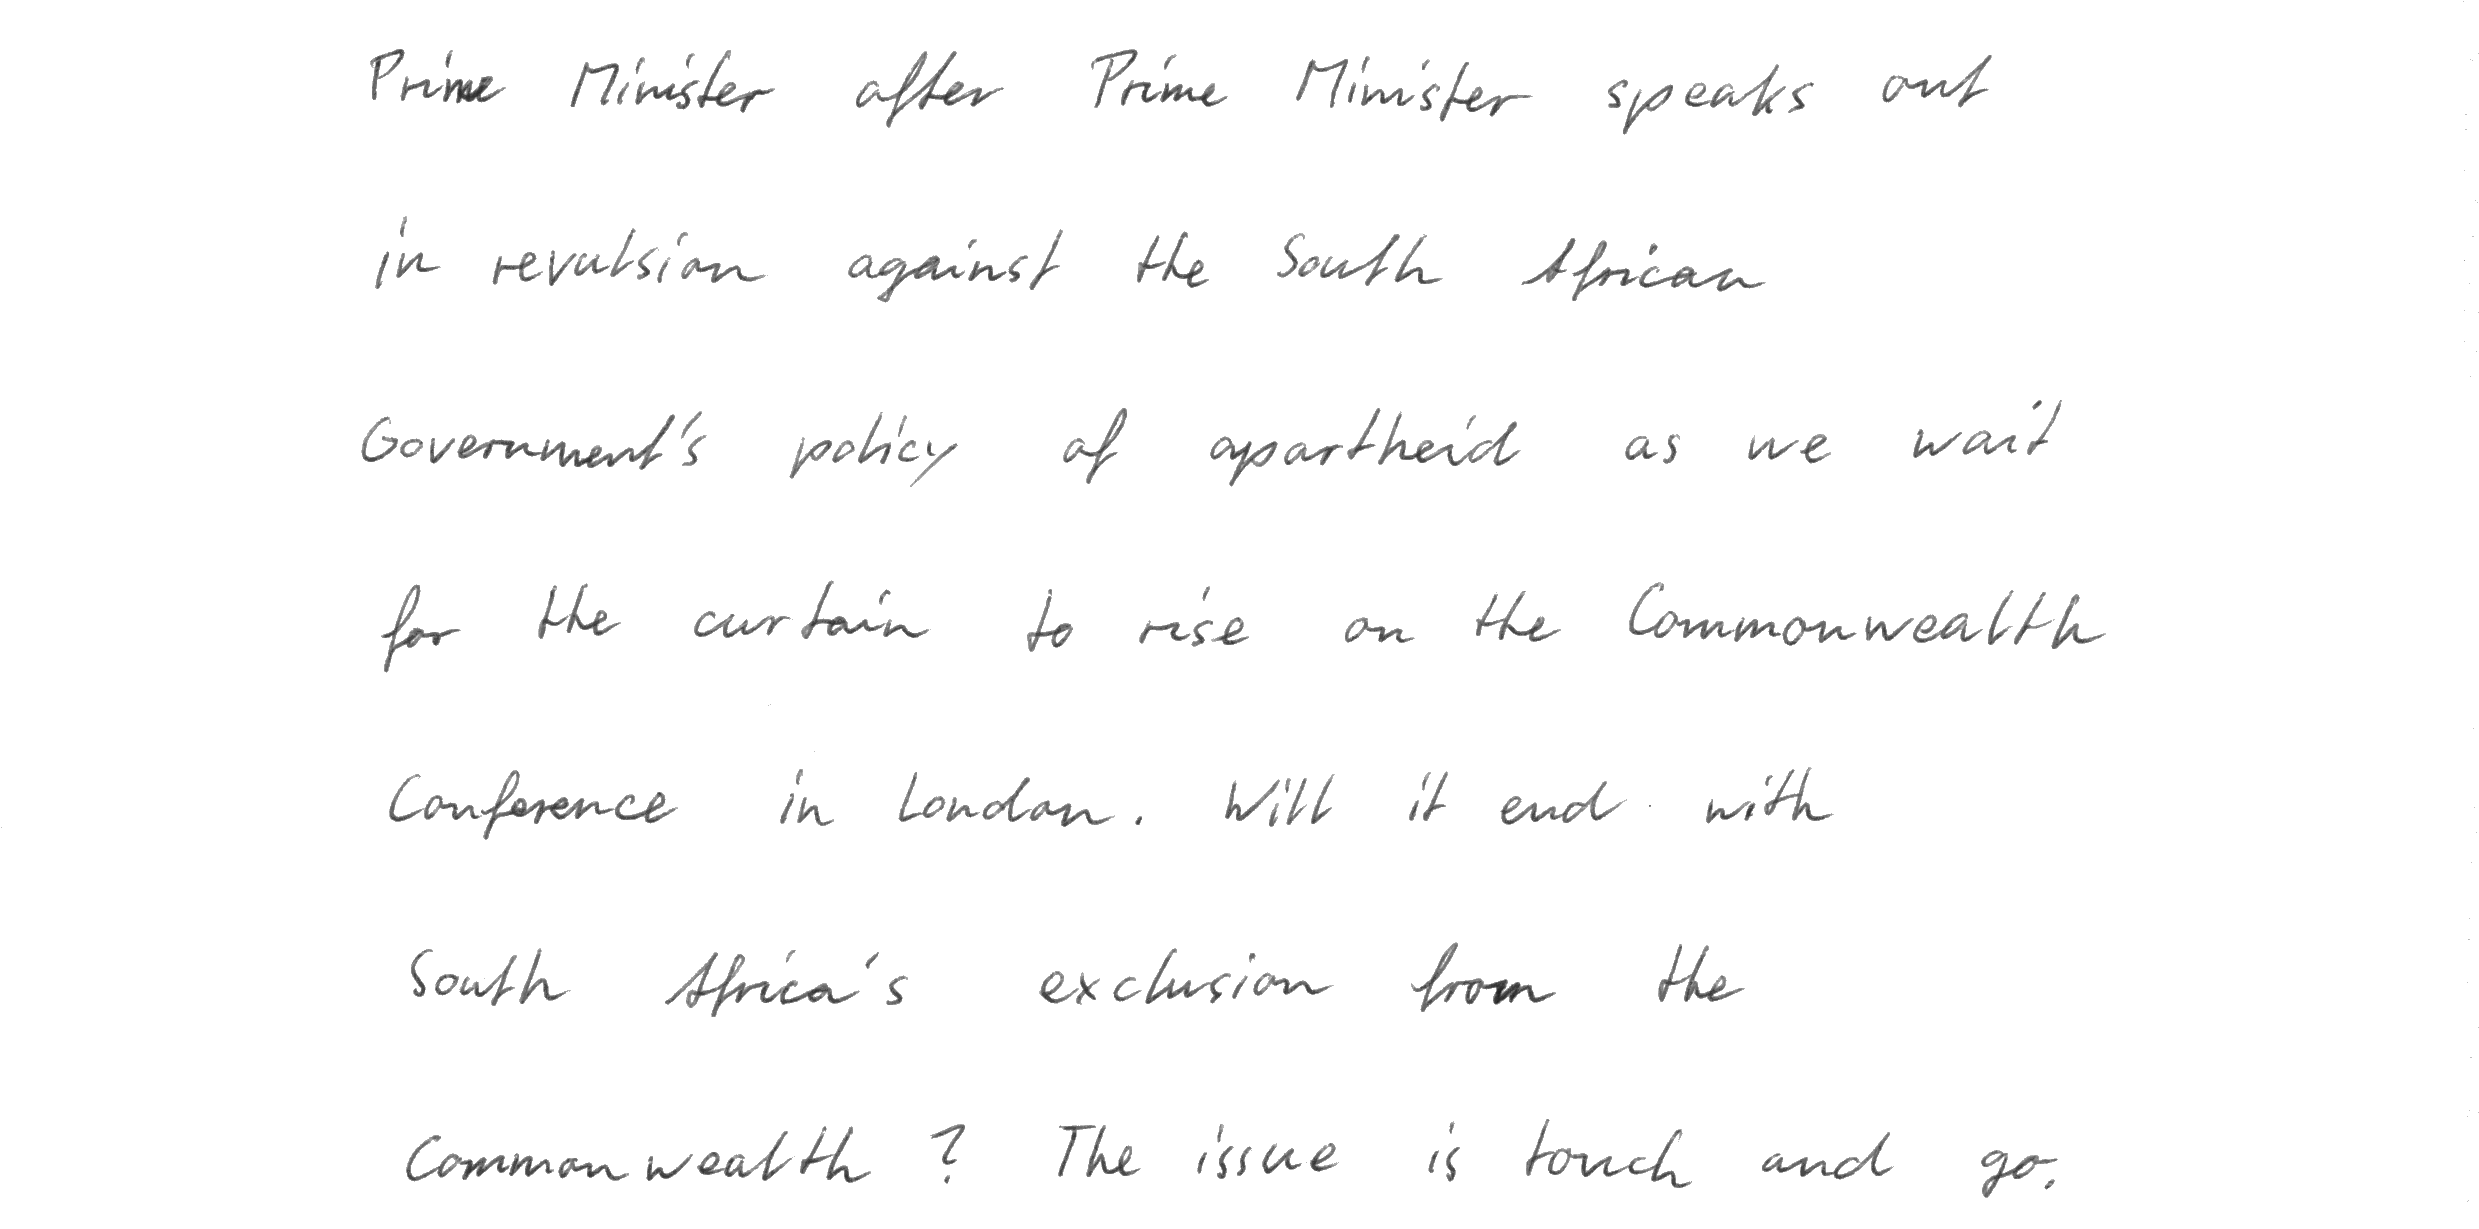 Prime Minister after Prime Minister speaks out
in revulsion against the South African
Government's policy of apartheid as we wait
for the curtain to rise on the Commonwealth
Conference in London. Will it end with
South Africa's exclusion from the
Commonwealth? The issue is touch and go.